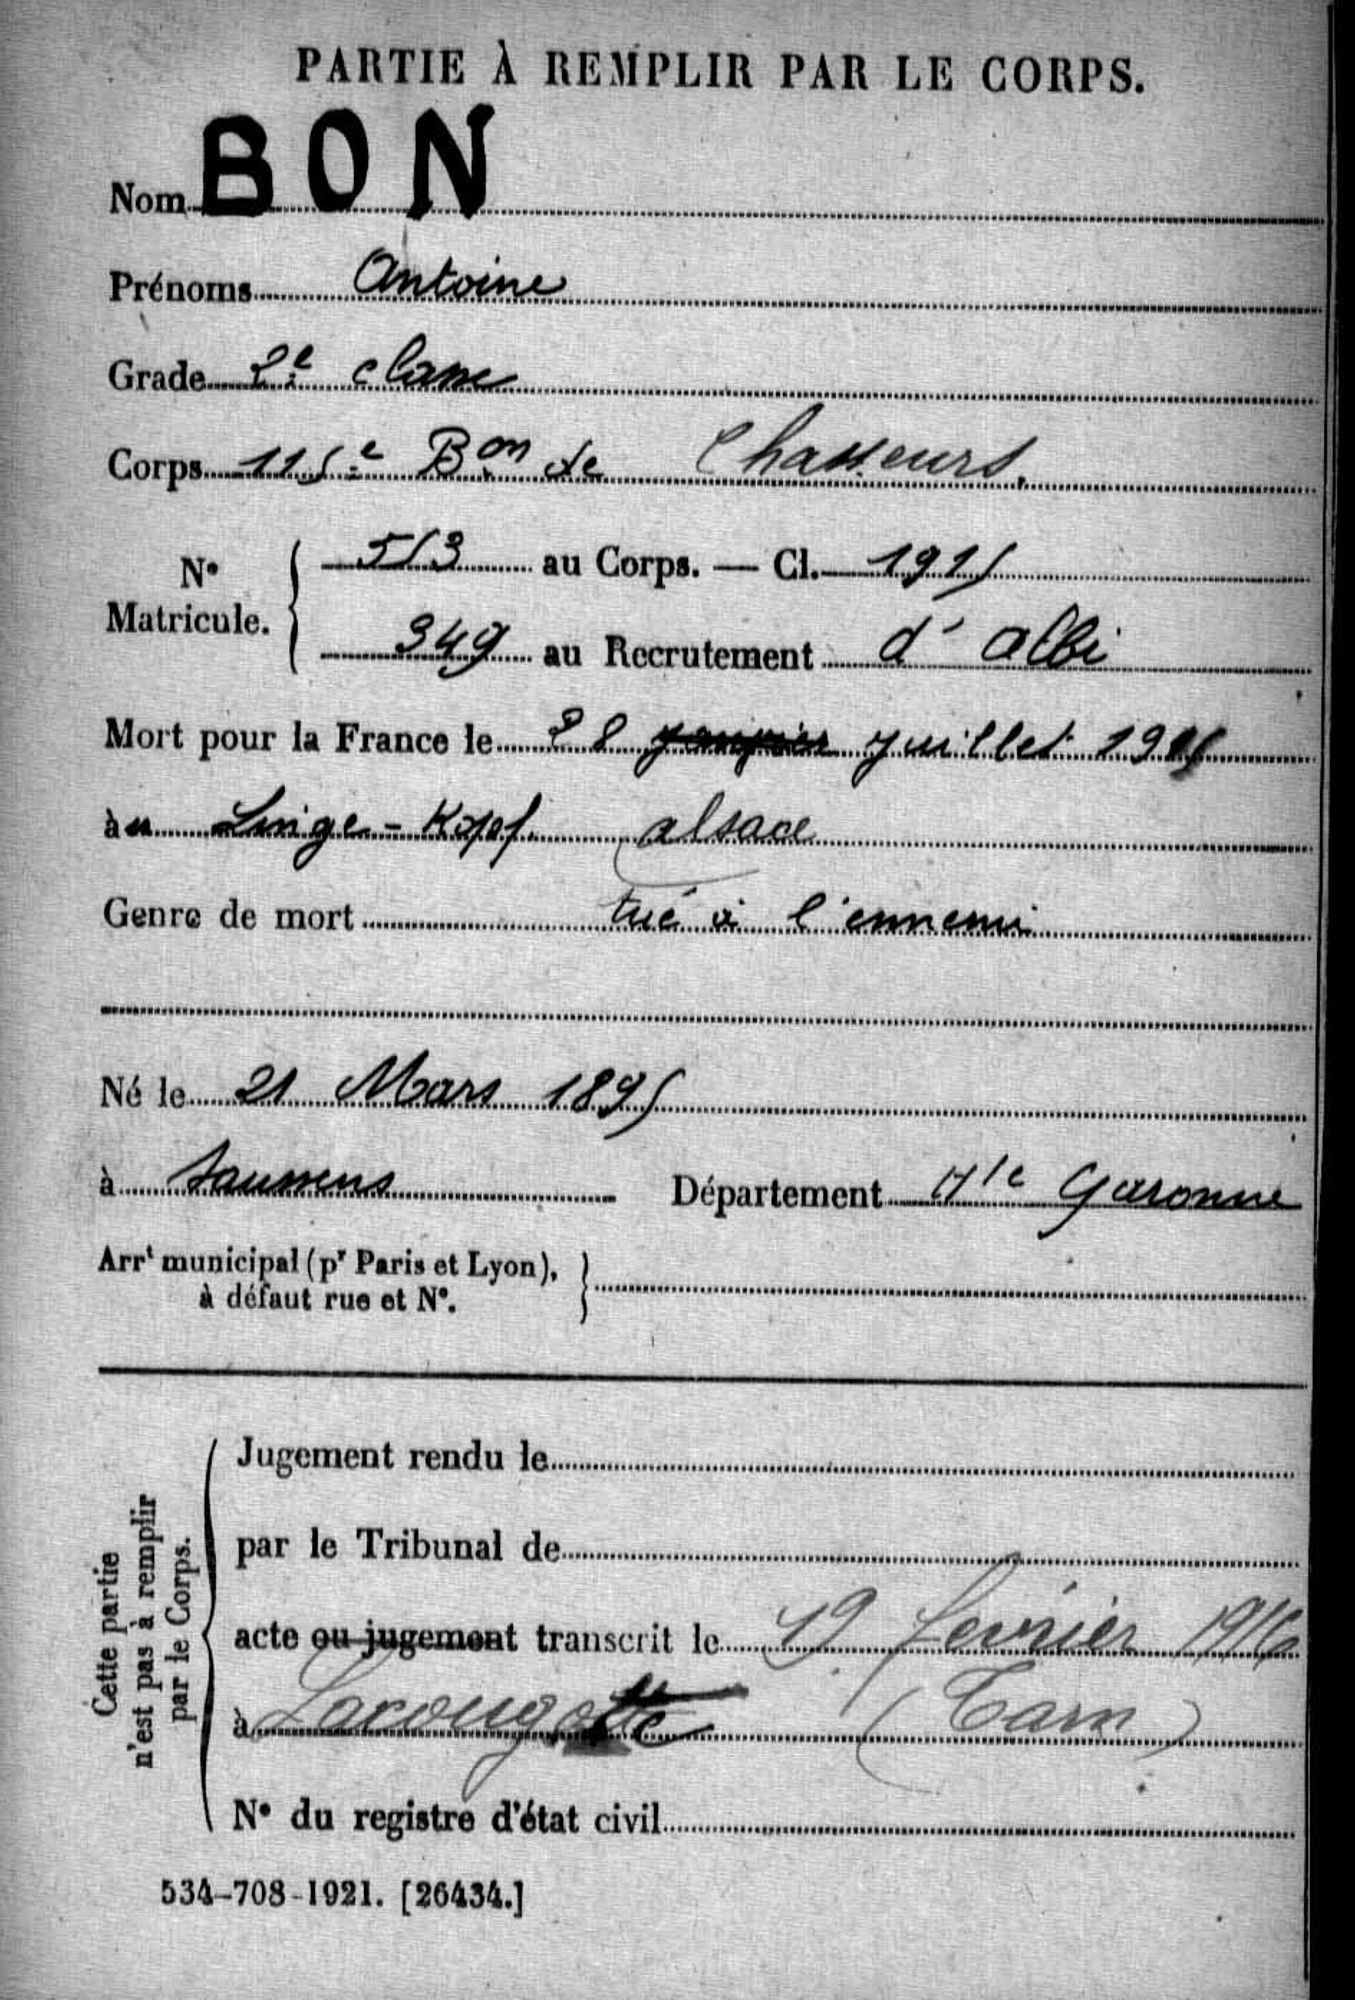 PARTIE À REMPLIR PAR LE CORPS.
Nom BON
Prénoms Antoine
Grade 2e classe
Corps 115e Bon de Chasseurs.
No Matricule. 513 au Corps. — Cl. 1915
349 au Recrutement d'Albi
Mort pour la France le 28 janvier juillet 1915
au Linge-Kopf. alsace
Genre de mort tué à l'ennemi
Né le 21 Mars 1895
à Saussens Département Hte Garonne
Arrt municipal (pr Paris et Lyon),
à défaut rue et No.
Cette partie
n'est pas à remplir
par le Corps.
Jugement rendu le
par le Tribunal de
acte ou jugement transcrit le 19 février 1916
à Lacougotte (Tarn)
No du registre d'état civil
534-708-1921. [26434.]